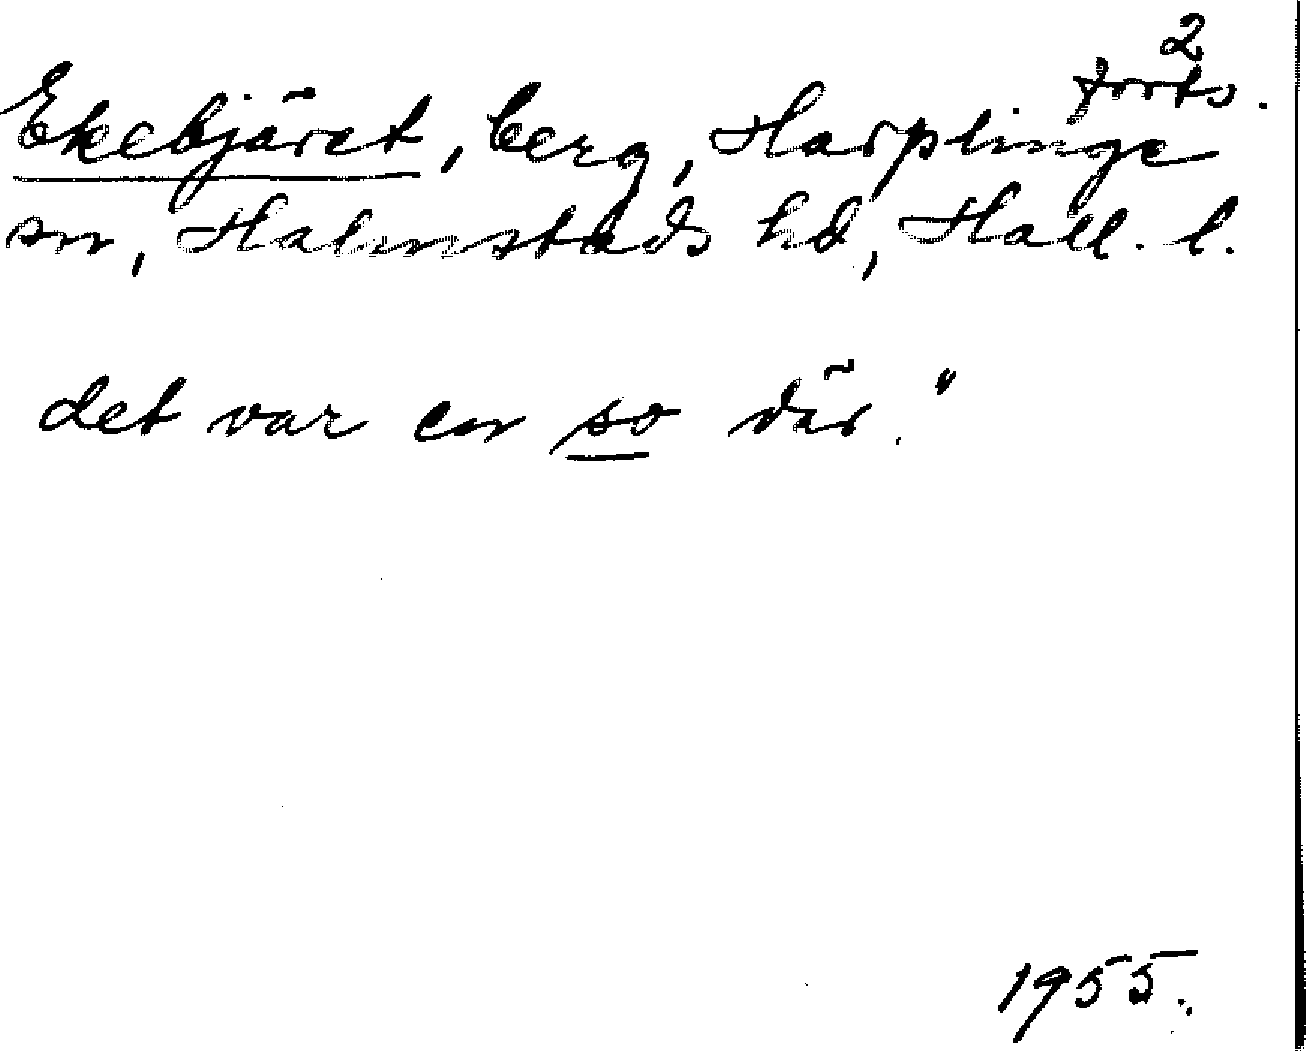 2
forts.
Ekebjäret, berg, Harplinge
sn, Halmstads hd, Hall. l.
det var en so där."
1955.